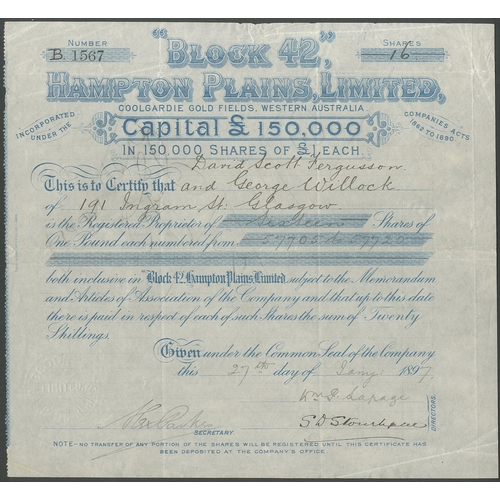 NUMBER
B 1567
SHARES
16
"BLOCK 42",
HAMPTON PLAINS, LIMITED,
COOLGARDIE GOLD FIELDS, WESTERN AUSTRALIA
INCORPORATED UNDER THE
COMPANIES ACTS 1862 TO 1890
Capital £150,000
IN 150,000 SHARES OF £1 EACH.
David Scott Fergusson
This is to Certify that and George Willock
of 191 Ingram St: Glasgow
is the Registered Proprietor of Sixteen Shares of
One Pound each numbered from 57705 to 57720
both inclusive in "Block 42", Hampton Plains Limited subject to the Memorandum
and Articles of Association of the Company and that up to this date
there is paid in respect of each of such Shares the sum of Twenty
Shillings.
Given under the Common Seal of the Company
this 27th day of Jany 1897.
SECRETARY
DIRECTORS.
NOTE - NO TRANSFER OF ANY PORTION OF THE SHARES WILL BE REGISTERED UNTIL THIS CERTIFICATE HAS
BEEN DEPOSITED AT THE COMPANY'S OFFICE.